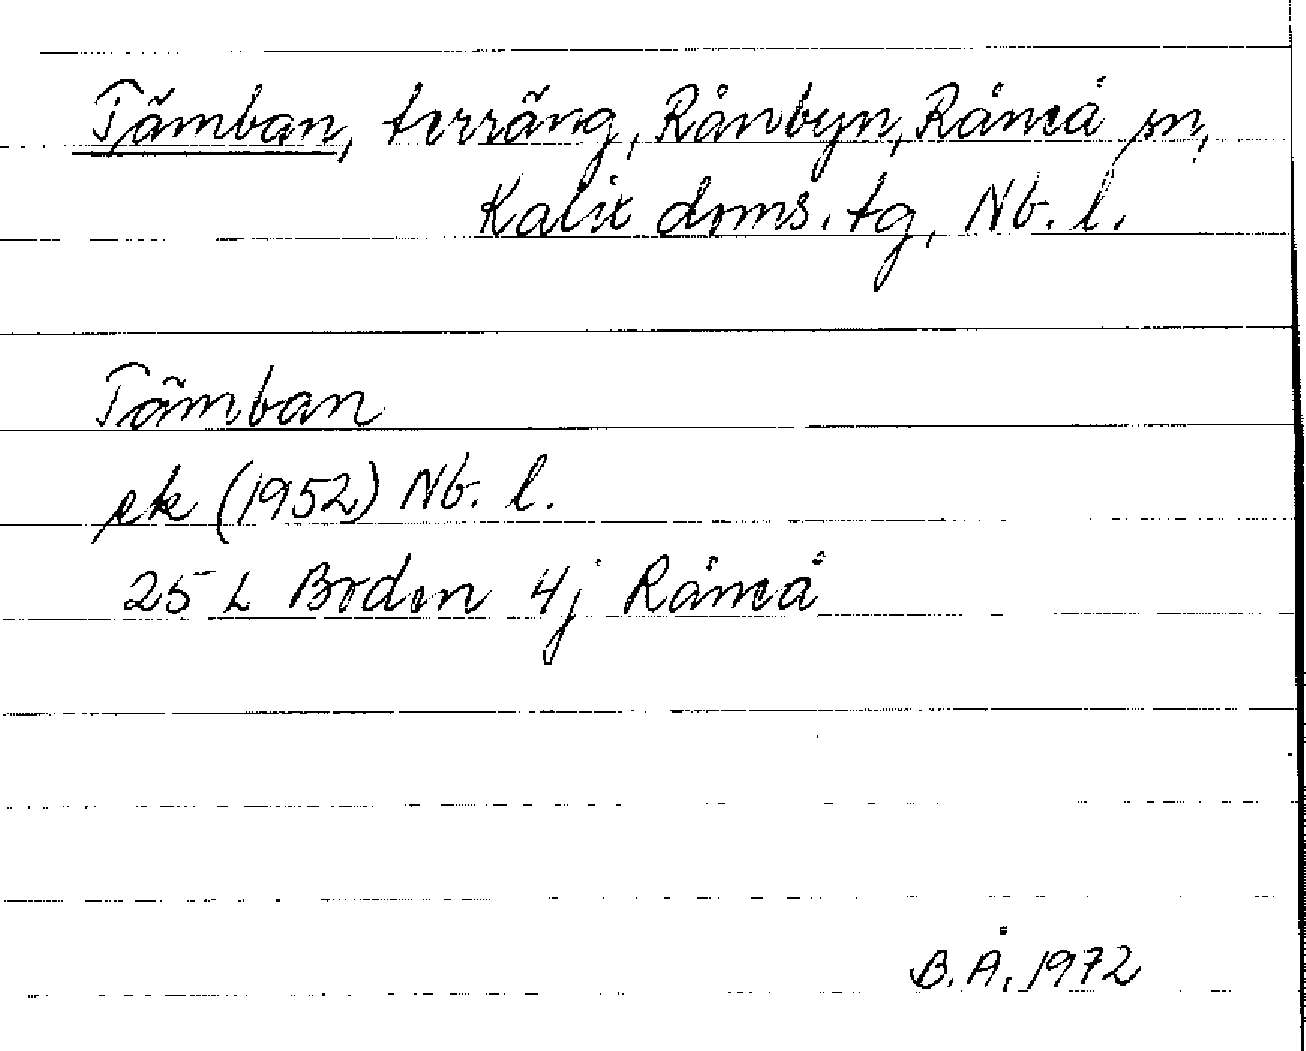 Tämban, terräng, Rånbyn, Råneå sn,
Kalix doms. tg, Nb. l.
Tämban
ek (1952) Nb. l.
25 L Boden 4j Råneå
B. Å. 1972